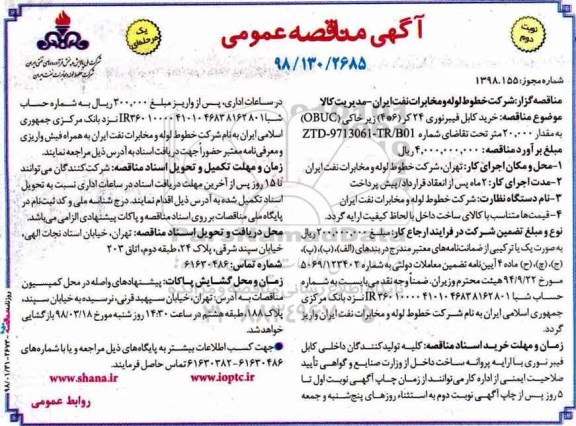 نوبت دوم
آگهی مناقصه عمومی
۹۸/۱۳۰/۲۶۸۵
یک مرحله‌ای
شرکت ملی پالایش و پخش فرآورده‌های نفتی ایران
شرکت خطوط لوله و مخابرات نفت ایران
شماره مجوز: ۱۳۹۸.۱۵۵
مناقصه گزار: شرکت خطوط لوله و مخابرات نفت ایران - مدیریت کالا
موضوع مناقصه: خرید کابل فیبر نوری ۲۴ کر (۶*۴) زیر خاکی (OBUC)
به مقدار ۲۰.۰۰۰ متر تحت تقاضای شماره ZTD-9713061-TR/B01
مبلغ برآورد مناقصه: ۴,۰۰۰,۰۰۰,۰۰۰ ریال
۱- محل و مکان اجرای کار: تهران، شرکت خطوط لوله و مخابرات نفت ایران
۲- مدت اجرای کار: ۲ ماه پس از انعقاد قرارداد/ پیش پرداخت
۳- نام دستگاه نظارت: شرکت خطوط لوله و مخابرات نفت ایران
۴- قیمت‌ها متناسب با کالای ساخت داخل با لحاظ کیفیت ارایه گردد.
نوع و مبلغ تضمین شرکت در فرایند ارجاع کار: مبلغ ۲۰۰,۰۰۰,۰۰۰ ریال
به صورت یک یا ترکیبی از ضمانت‌نامه‌های معتبر مندرج در بندهای (الف)، (ب)، (پ)،
(ج)، (چ)، (ح) ماده ۴ آیین‌نامه تضمین معاملات دولتی به شماره ۱۲۳۴۰۲/ت۵۰۶۹
مورخ ۹۴/۹/۲۲ هیئت محترم وزیران. ضمناً وجه نقد می‌بایست به شماره
حساب شبا IR۳۶۰۱۰۰۰۰۴۱۰۱۰۴۶۸۳۸۱۶۲۸۰۱ نزد بانک مرکزی
جمهوری اسلامی ایران به نام شرکت خطوط لوله و مخابرات نفت ایران واریز
گردد.
زمان و مهلت خرید اسناد مناقصه: کلیه تولیدکنندگان داخلی کابل
فیبر نوری با ارایه پروانه ساخت داخل از وزارت صنایع و گواهی تأیید
صلاحیت ایمنی از اداره کار می‌توانند از زمان چاپ آگهی نوبت اول تا
۵ روز پس از چاپ آگهی نوبت دوم به استثناء روزهای پنج‌شنبه و جمعه
در ساعات اداری، پس از واریز مبلغ ۳۰۰,۰۰۰ ریال به شماره حساب
شبا IR۳۶۰۱۰۰۰۰۴۱۰۱۰۴۶۸۳۸۱۶۲۸۰۱ نزد بانک مرکزی جمهوری
اسلامی ایران به نام شرکت خطوط لوله و مخابرات نفت ایران به همراه فیش واریزی
و معرفی‌نامه معتبر حضوراً جهت دریافت اسناد به آدرس ذیل مراجعه نمایند.
زمان و مهلت تکمیل و تحویل اسناد مناقصه: شرکت‌کنندگان می‌توانند
تا ۱۵ روز پس از آخرین مهلت دریافت اسناد در ساعات اداری نسبت به تحویل
اسناد تکمیل شده به آدرس ذیل اقدام نمایند. درج شناسه ملی و کد ثبت‌نام در
پایگاه ملی مناقصات بر روی اسناد مناقصه و پاکات پیشنهادی الزامی می‌باشد.
محل دریافت و تحویل اسناد مناقصه: تهران، خیابان استاد نجات الهی،
خیابان سپند شرقی، پلاک ۲۴، طبقه دوم، اتاق ۲۰۳
شماره تماس: ۶۱۶۳۰۴۸۶
زمان و محل گشایش پاکات: پیشنهادهای واصله در محل کمیسیون
مناقصات به آدرس: تهران، خیابان سپهبد قرنی، نرسیده به خیابان سپند،
پلاک ۱۸۸، طبقه هشتم در ساعت ۱۴:۳۰ روز شنبه مورخ ۹۸/۰۳/۱۸ بازگشایی
خواهد شد.
جهت کسب اطلاعات بیشتر به پایگاه‌های ذیل مراجعه و یا با شماره‌های
۶۱۶۳۰۴۸۶-۶۱۶۳۰۳۸۲ تماس حاصل فرمایند.
www.shana.ir
www.ioptc.ir
روابط عمومی